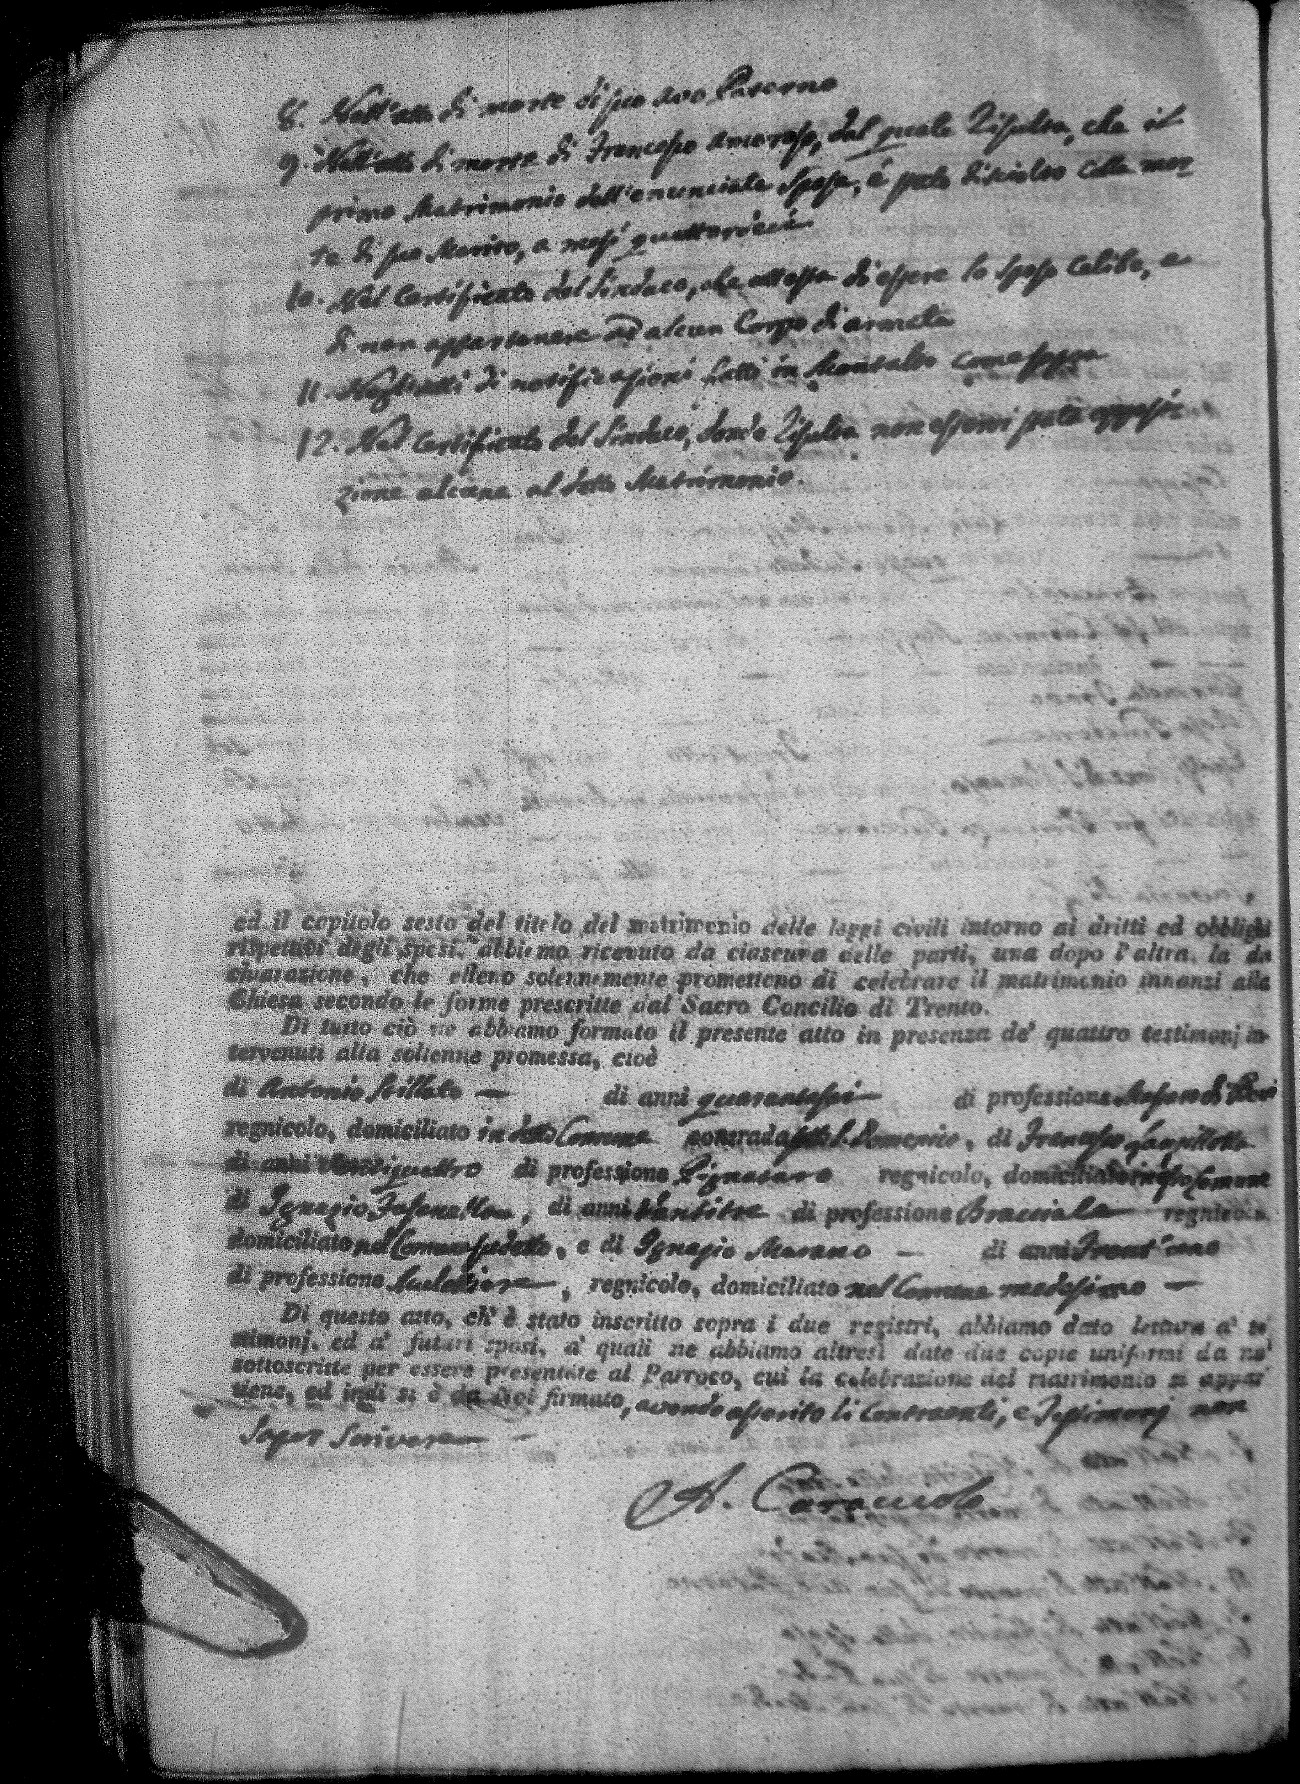 8. Nell'atto di morte di suo avo Paterno
9. Nell'atto di morte di Francesco Amoroso, dal quale risulta, che il
primo Matrimonio dell'enunciata Sposa, è stato disciolto colla mor-
te di suo Marito, a mesi quattordeci
10. Nel Certificato del Sindaco, che attessa di essere lo sposo celibe, e
di non appartenere ad alcun Corpo di armata
11. Negli atti di notificazioni fatti in Montalto come sopra
12. Nel Certificato del Sindaco, donde risulta non essersi fatta opposi-
zione alcuna al detto Matrimonio.
ed il capitolo sesto del titolo del matrimonio delle leggi civili intorno ai dritti ed obblighi
rispettivi degli sposi, abbiamo ricevuto da ciascuna delle parti, una dopo l'altra, la di-
chiarazione, che elleno solennemente promettono di celebrare il matrimonio innanzi alla
Chiesa secondo le forme prescritte dal Sacro Concilio di Trento.
Di tutto ciò ne abbiamo formato il presente atto in presenza de' quattro testimonj in-
tervenuti alla solenne promessa, cioè
di Antonio Stillato — di anni quarantasei — di professione
regnicolo, domiciliato in detto Comune contrada S. Domenico, di Francesco
di anni ventiquattro di professione Pignataro regnicolo, domiciliato in esso Comune
di Ignazio, di anni ventitre di professione Bracciale — regnicolo
domiciliato nel Comune sudetto, e di Ignazio Marano — di anni Trent'uno
di professione, regnicolo, domiciliato nel Comune medesimo —
Di questo atto, ch' è stato inscritto sopra i due registri, abbiamo dato lettura a' te-
stimonj, ed a' futuri sposi, a' quali ne abbiamo altresì date due copie uniformi da noi
sottoscritte per essere presentate al Parroco, cui la celebrazione del matrimonio si appar-
tiene, ed indi si è da noi firmato, avendo asserito li Contraenti, e Testimonj non
saper scrivere —
A. Caracciolo